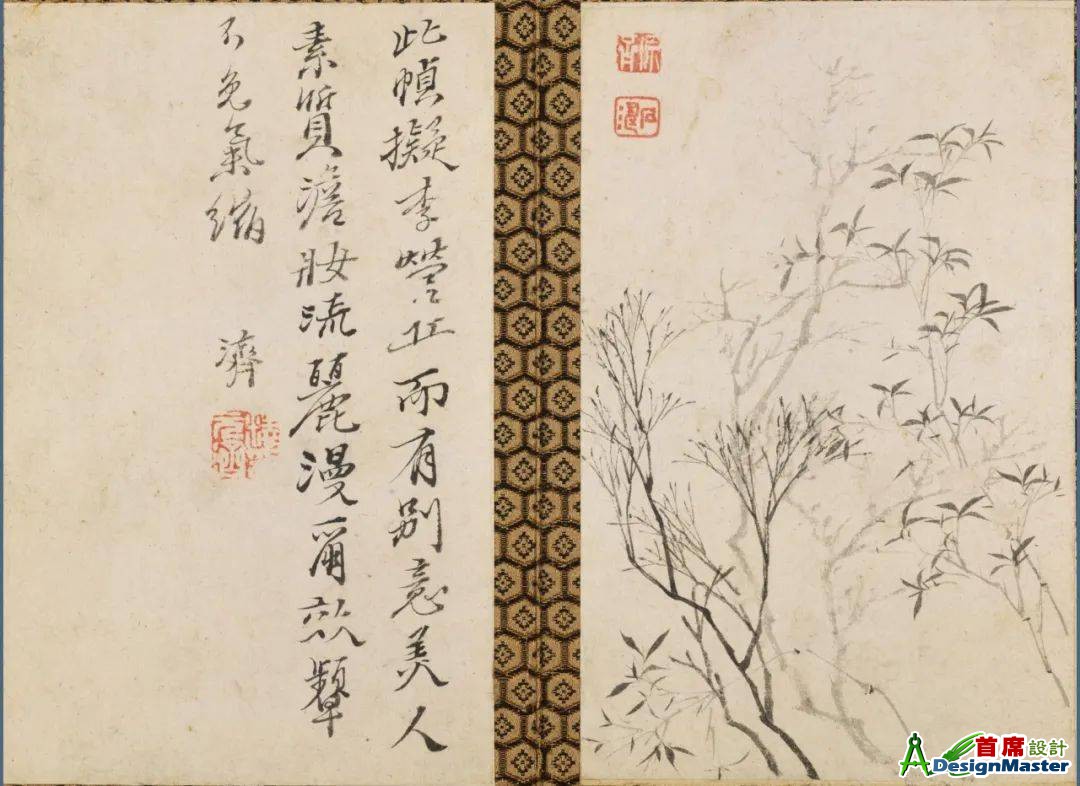 此幀擬李營丘而有别意美人
素質澹妝流麗漫爾效顰
不免氣縮
濟
首席設計
DesignMaster